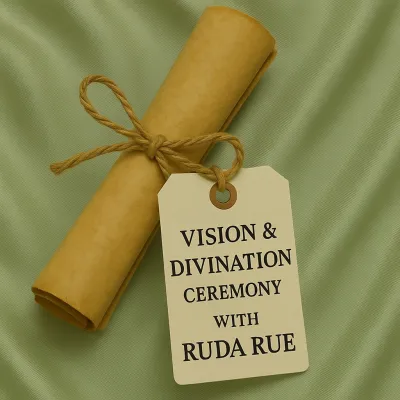 VISION &
DIVINATION
CEREMONY
WITH
RUDA RUE